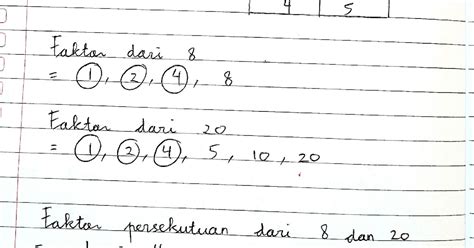 4 5
Faktor dari 8
= 1, 2, 4, 8
Faktor dari 20
= 1, 2, 4, 5, 10, 20
Faktor persekutuan dari 8 dan 20